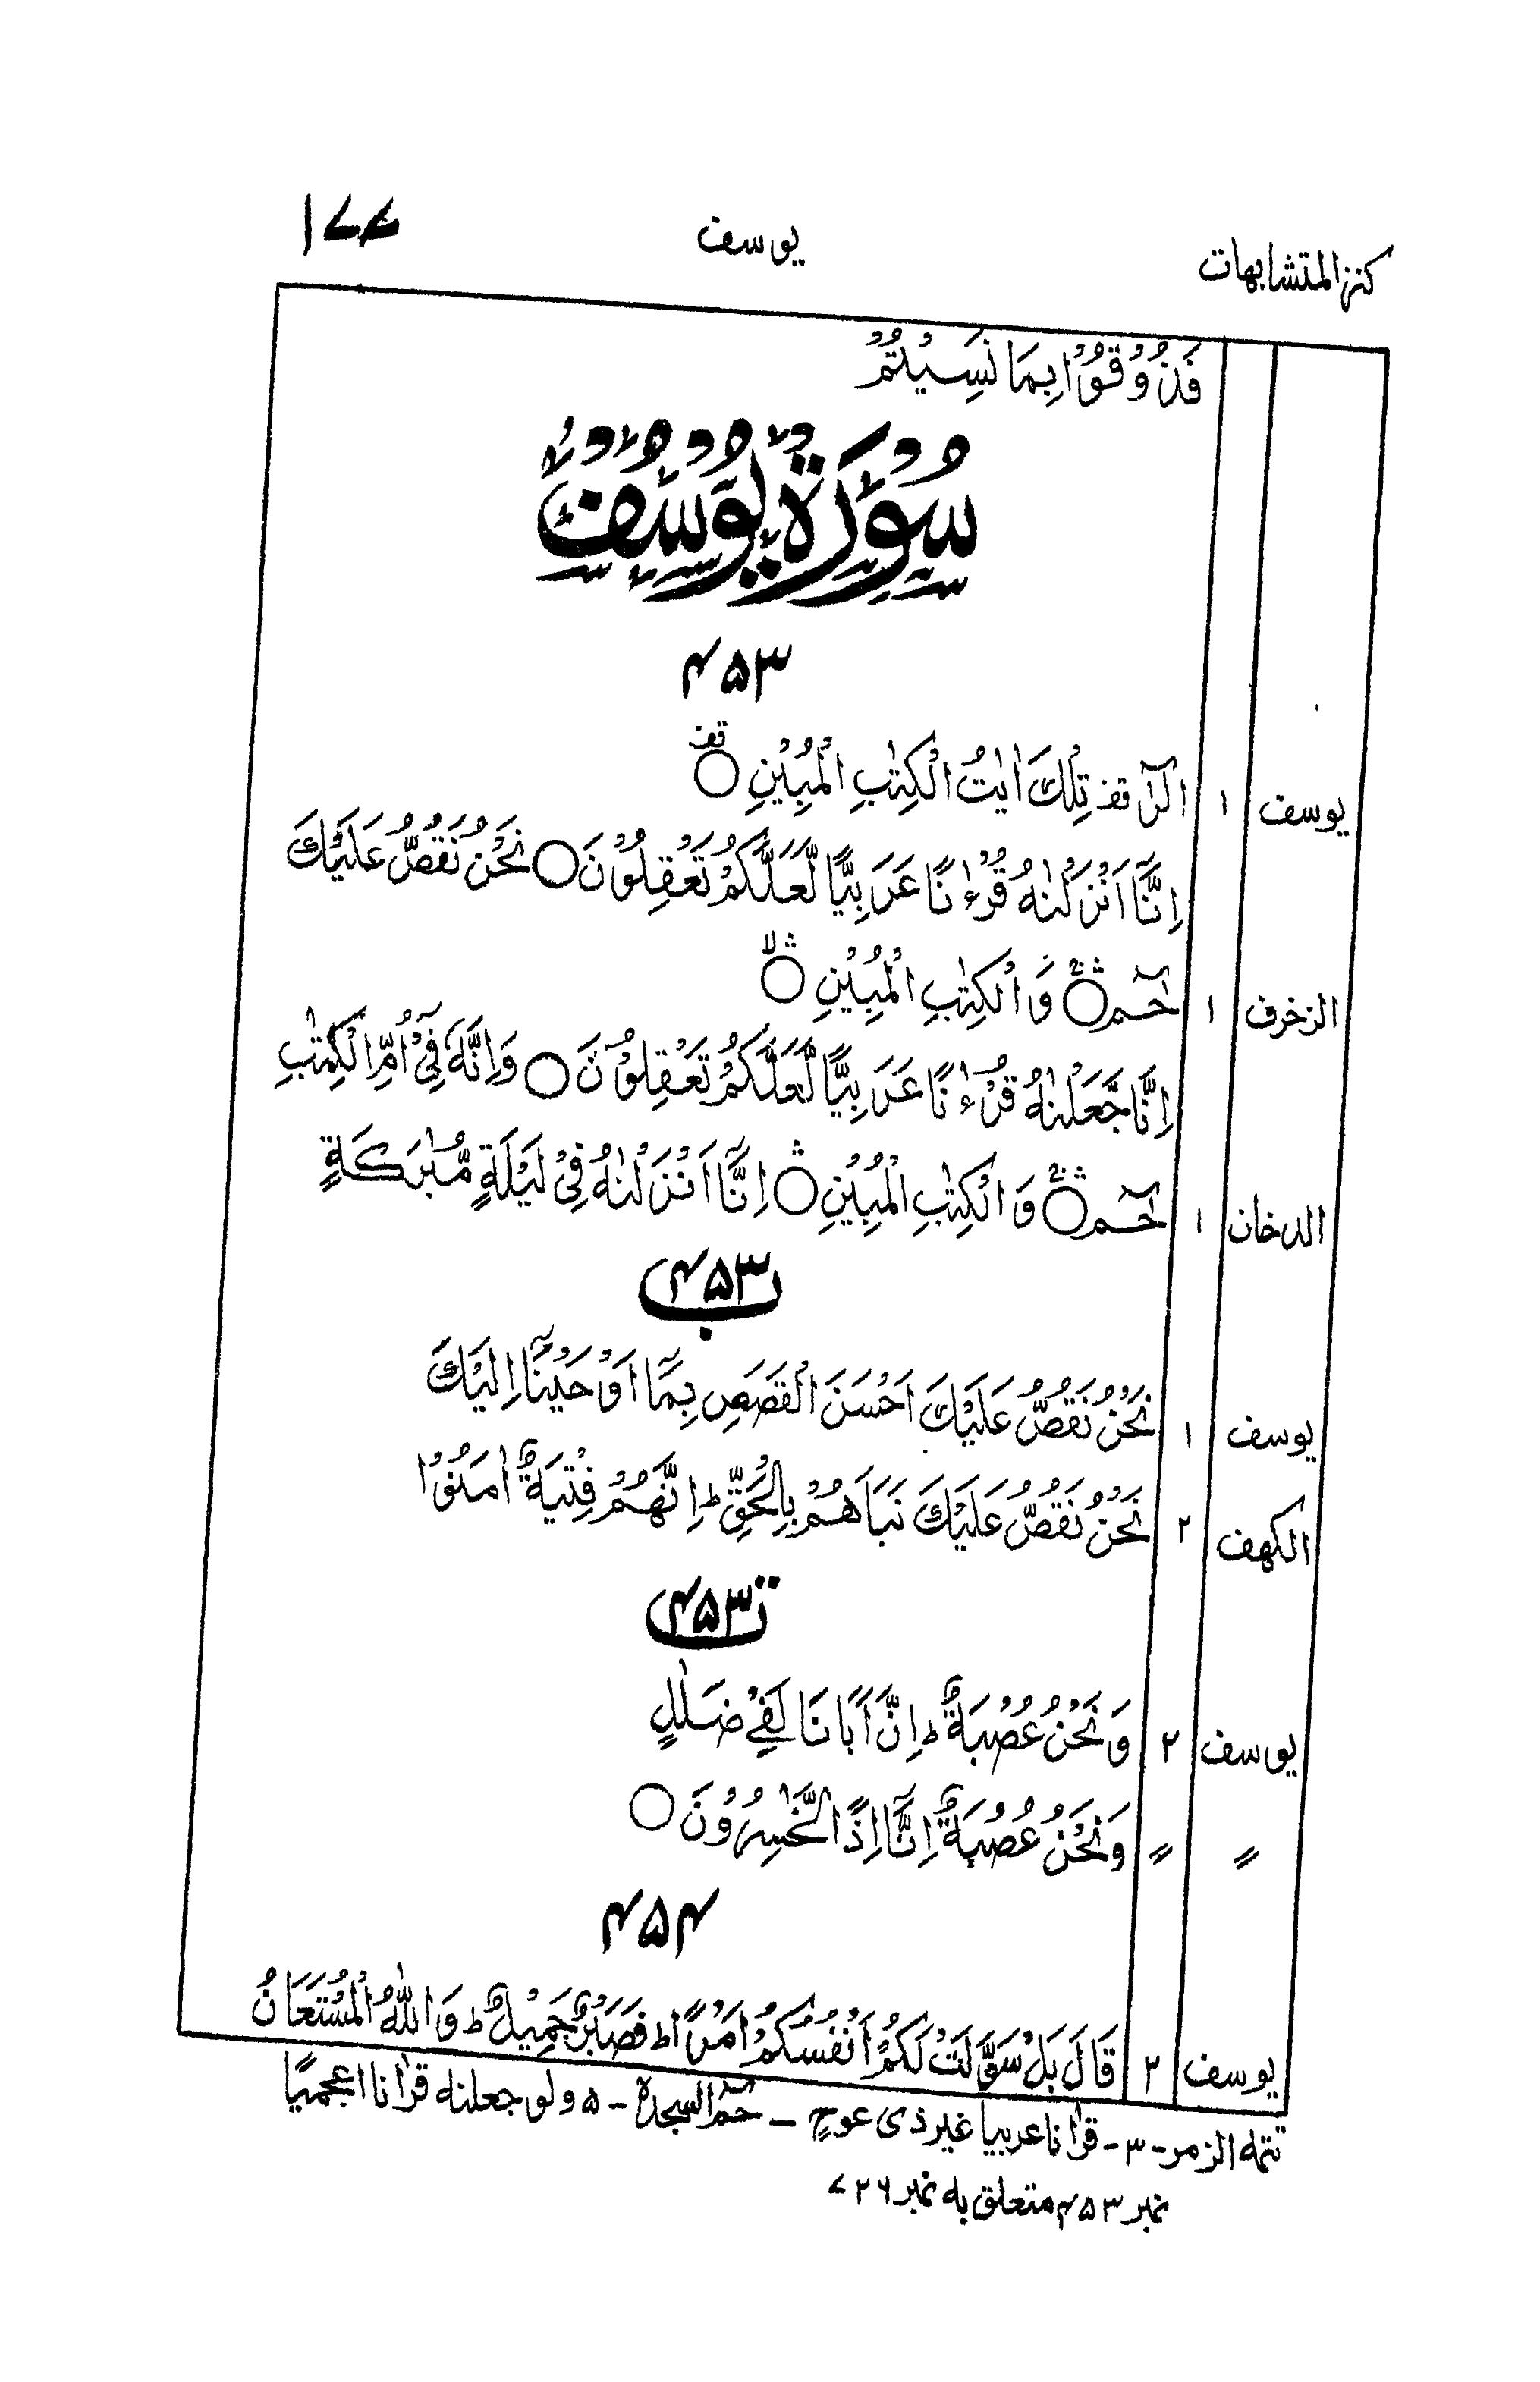 كنز المتشابهات يوسف ۱۷۷
فَذُوْقُوْا بِمَا نَسِيْتُمْ
سُوْرَةُ يُوْسُفَ
۴۵۳
يوسف ۱ الٓرٰ قف تِلْكَ اٰيٰتُ الْكِتٰبِ الْمُبِيْنِ ○ قف
اِنَّآ اَنْزَلْنٰهُ قُرْءٰنًا عَرَبِيًّا لَّعَلَّكُمْ تَعْقِلُوْنَ ○ نَحْنُ نَقُصُّ عَلَيْكَ
الزخرف ۱ حٰمٓ ○ وَالْكِتٰبِ الْمُبِيْنِ ○ لا
اِنَّا جَعَلْنٰهُ قُرْءٰنًا عَرَبِيًّا لَّعَلَّكُمْ تَعْقِلُوْنَ ○ وَاِنَّهٗ فِيْٓ اُمِّ الْكِتٰبِ
الدخان ۱ حٰمٓ ○ وَالْكِتٰبِ الْمُبِيْنِ ○ اِنَّآ اَنْزَلْنٰهُ فِيْ لَيْلَةٍ مُّبٰرَكَةٍ
۴۵۳ ب
يوسف ۱ نَحْنُ نَقُصُّ عَلَيْكَ اَحْسَنَ الْقَصَصِ بِمَآ اَوْحَيْنَآ اِلَيْكَ
الكهف ۲ نَحْنُ نَقُصُّ عَلَيْكَ نَبَاَهُمْ بِالْحَقِّ ط اِنَّهُمْ فِتْيَةٌ اٰمَنُوْا
۴۵۳ ت
يوسف ۲ وَنَحْنُ عُصْبَةٌ ط اِنَّ اَبَانَا لَفِيْ ضَلٰلٍ
〃 〃 وَنَحْنُ عُصْبَةٌ اِنَّآ اِذًا لَّخٰسِرُوْنَ ○
۴۵۴
يوسف ۲ قَالَ بَلْ سَوَّلَتْ لَكُمْ اَنْفُسُكُمْ اَمْرًا ط فَصَبْرٌ جَمِيْلٌ ط وَاللّٰهُ الْمُسْتَعَانُ
تتمه الزمر - ۳ - قراٰنا عربيا غير ذى عوجٍ - حٰمٓ السجدة - ۵ ولو جعلنه قراٰنا اعجميًا
نمبر ۴۵۳ متعلق به نمبر ۷۲۶